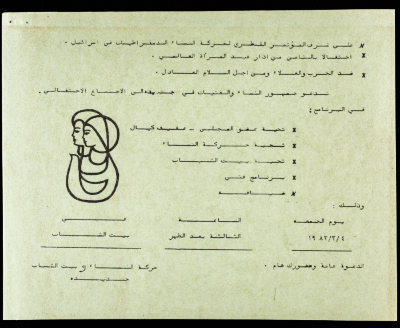 * على شرف المؤتمر القطري لحركة النساء الديمقراطيات في اسرائيل .
* احتفالا بالثامن من اذار عيد المرأة العالمي .
* ضد الحرب والغلاء ومن اجل السلام العادل .
ندعو جمهور النساء والفتيات في جديده الى الاجتماع الاحتفالي .
في البرنامج :
* تحية عضو المجلس - عفيف كيال
* تحية حركة النساء
* تحية بيت الشباب
* برنامج فني
* ضيافة
وذلك :
يوم الجمعه الساعة في
١٩٨٢/٣/٤ الثالثة بعد الظهر بيت الشباب
الدعوة عامة وحضورك هام . حركة النساء و بيت الشباب
جديده